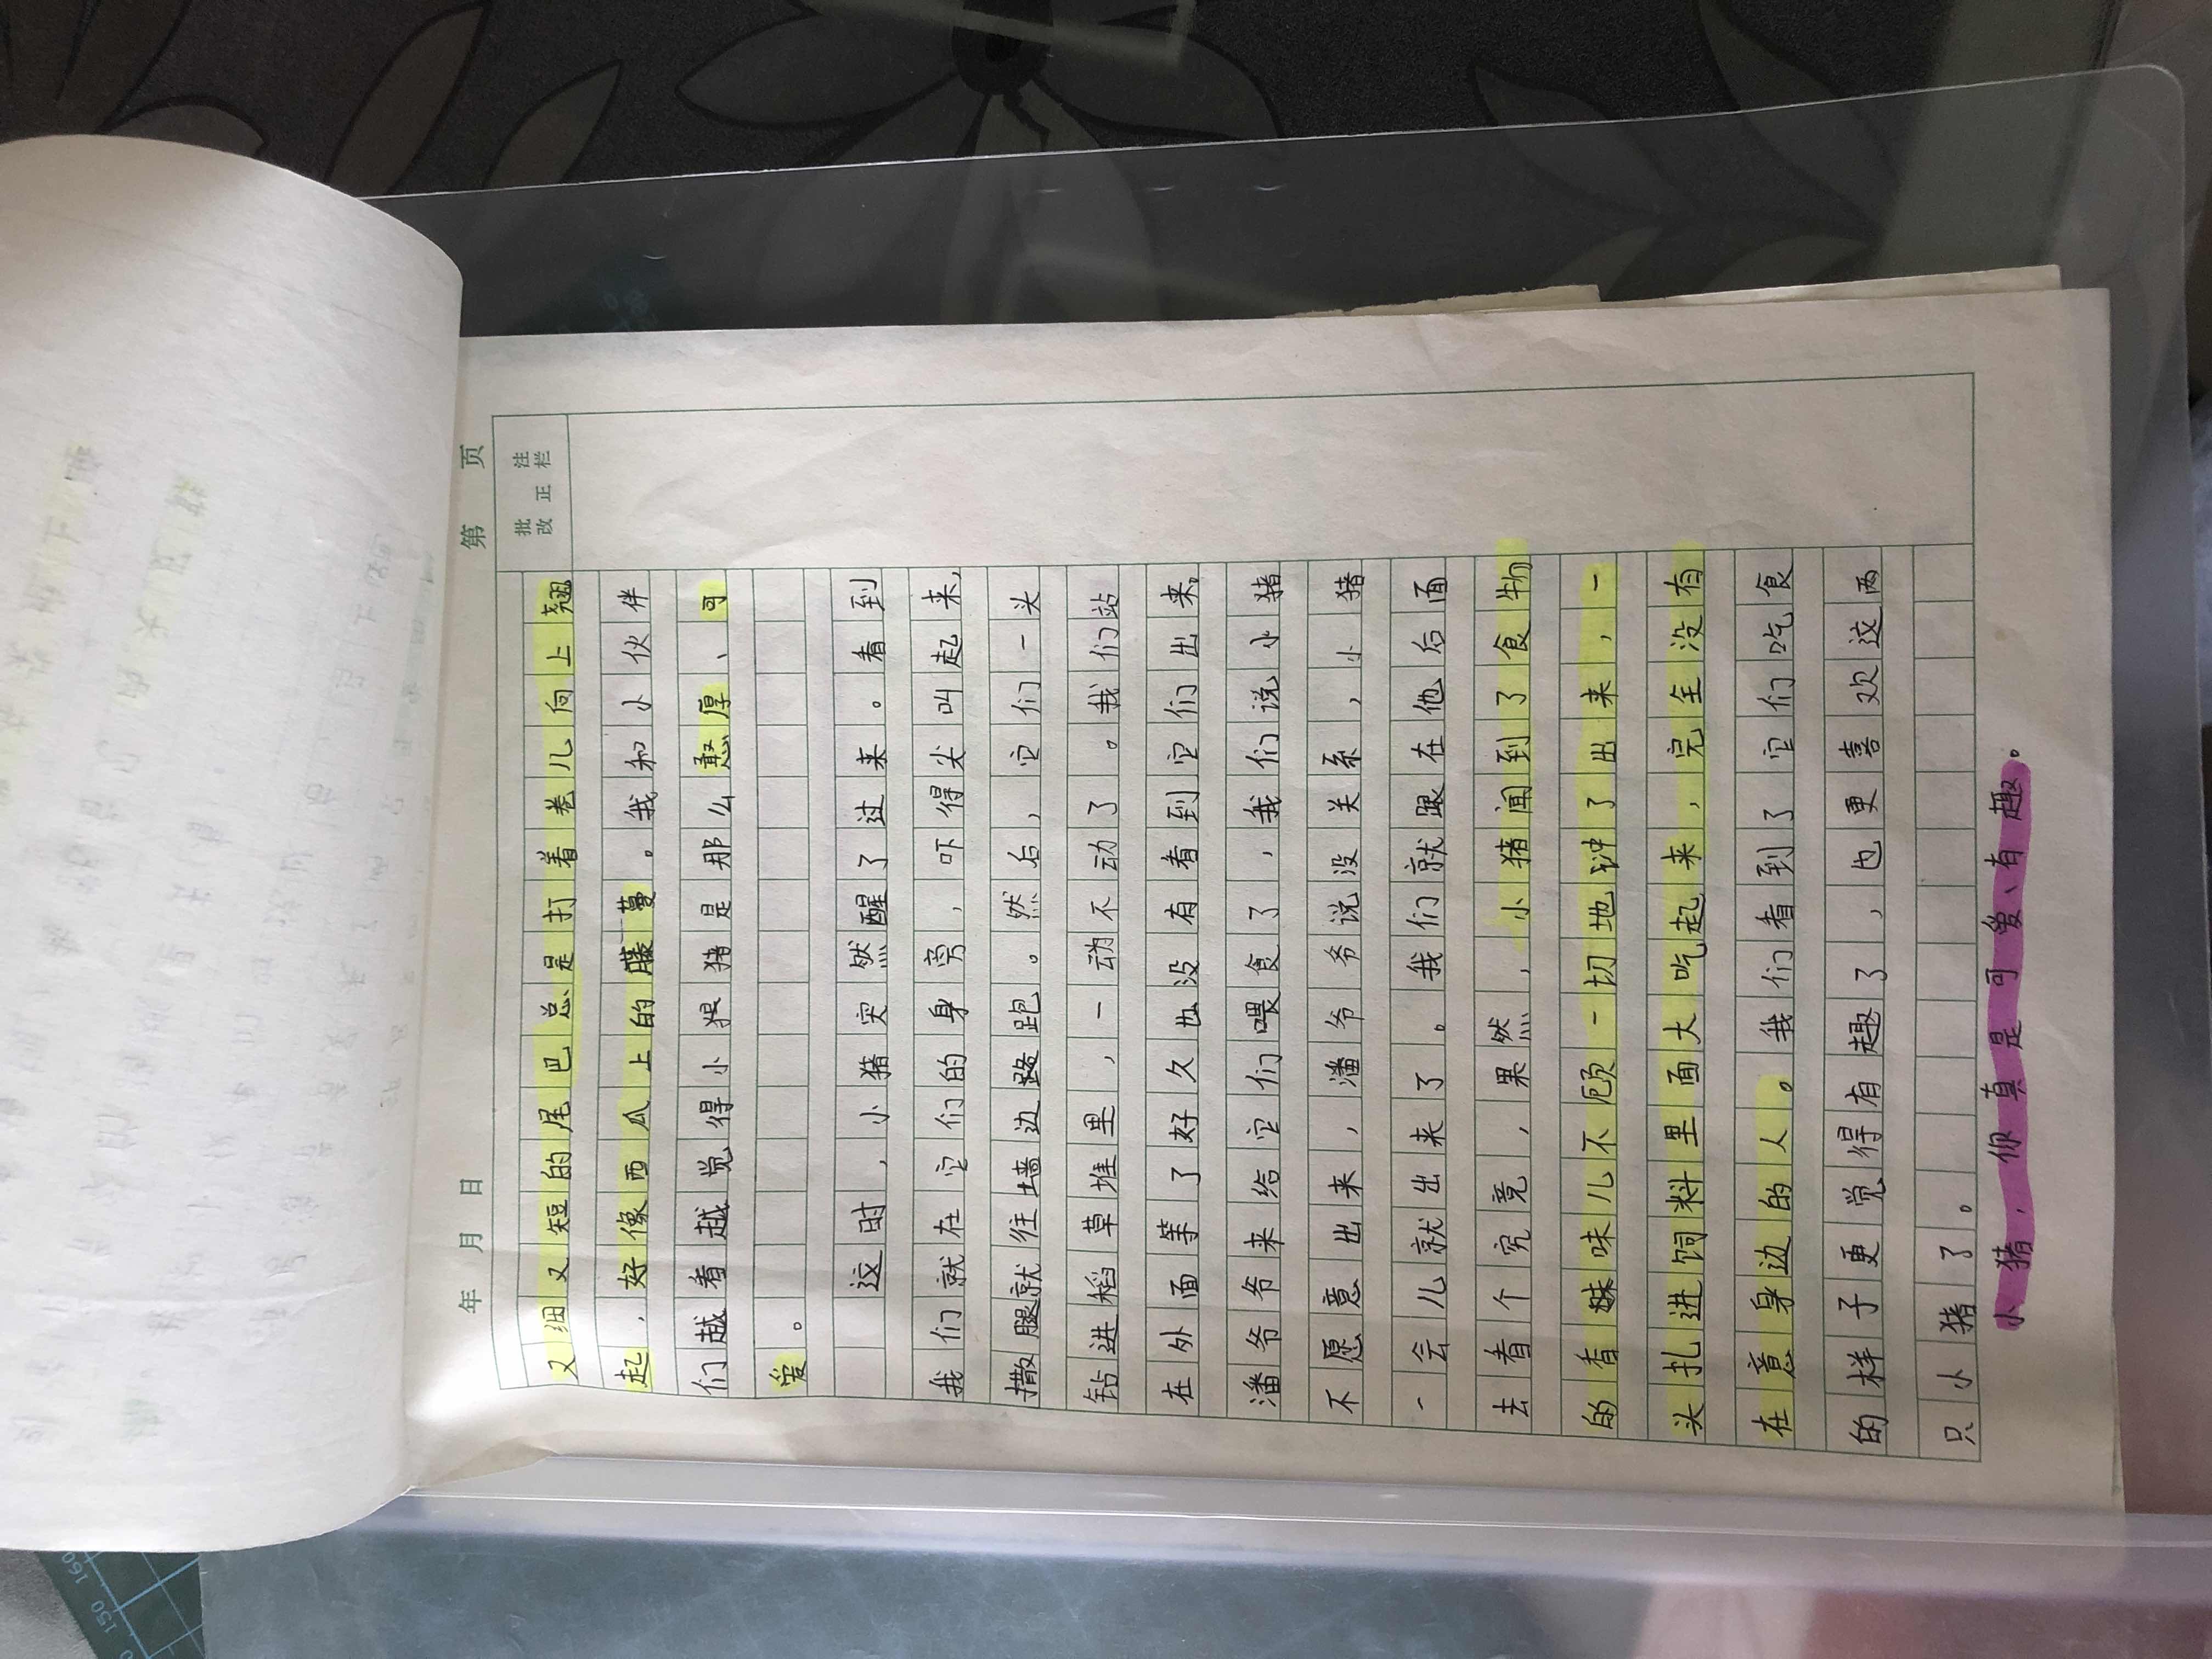 年 月 日 第 页
批 注
改 正 栏
又细又短的尾巴总是打着卷儿向上翘
起,好像西瓜上的藤蔓。我和小伙伴
们越看越觉得小猪猪是那么憨厚、可
爱。
这时,小猪突然醒了过来。看到
我们就在它们的身旁,吓得尖叫起来,
撒腿就往墙边路跑。然后,它们一头
钻进稻草堆里,一动不动了。我们站
在外面等了好久也没有看到它们出来,
潘爷爷来给它们喂食了,我们说小猪
不愿意出来,潘爷爷说没关系,小猪
一会儿就出来了。我们就跟在他后面
去看个究竟,果然,小猪闻到了食物
的香味儿不顾一切地冲了出来,一
头扎进饲料里面大吃起来,完全没有
在意身边的人。我们看到了它们吃食
的样子更觉得有趣了,也更喜欢这两
只小猪了。
小猪,你真是可爱、有趣。
150
160